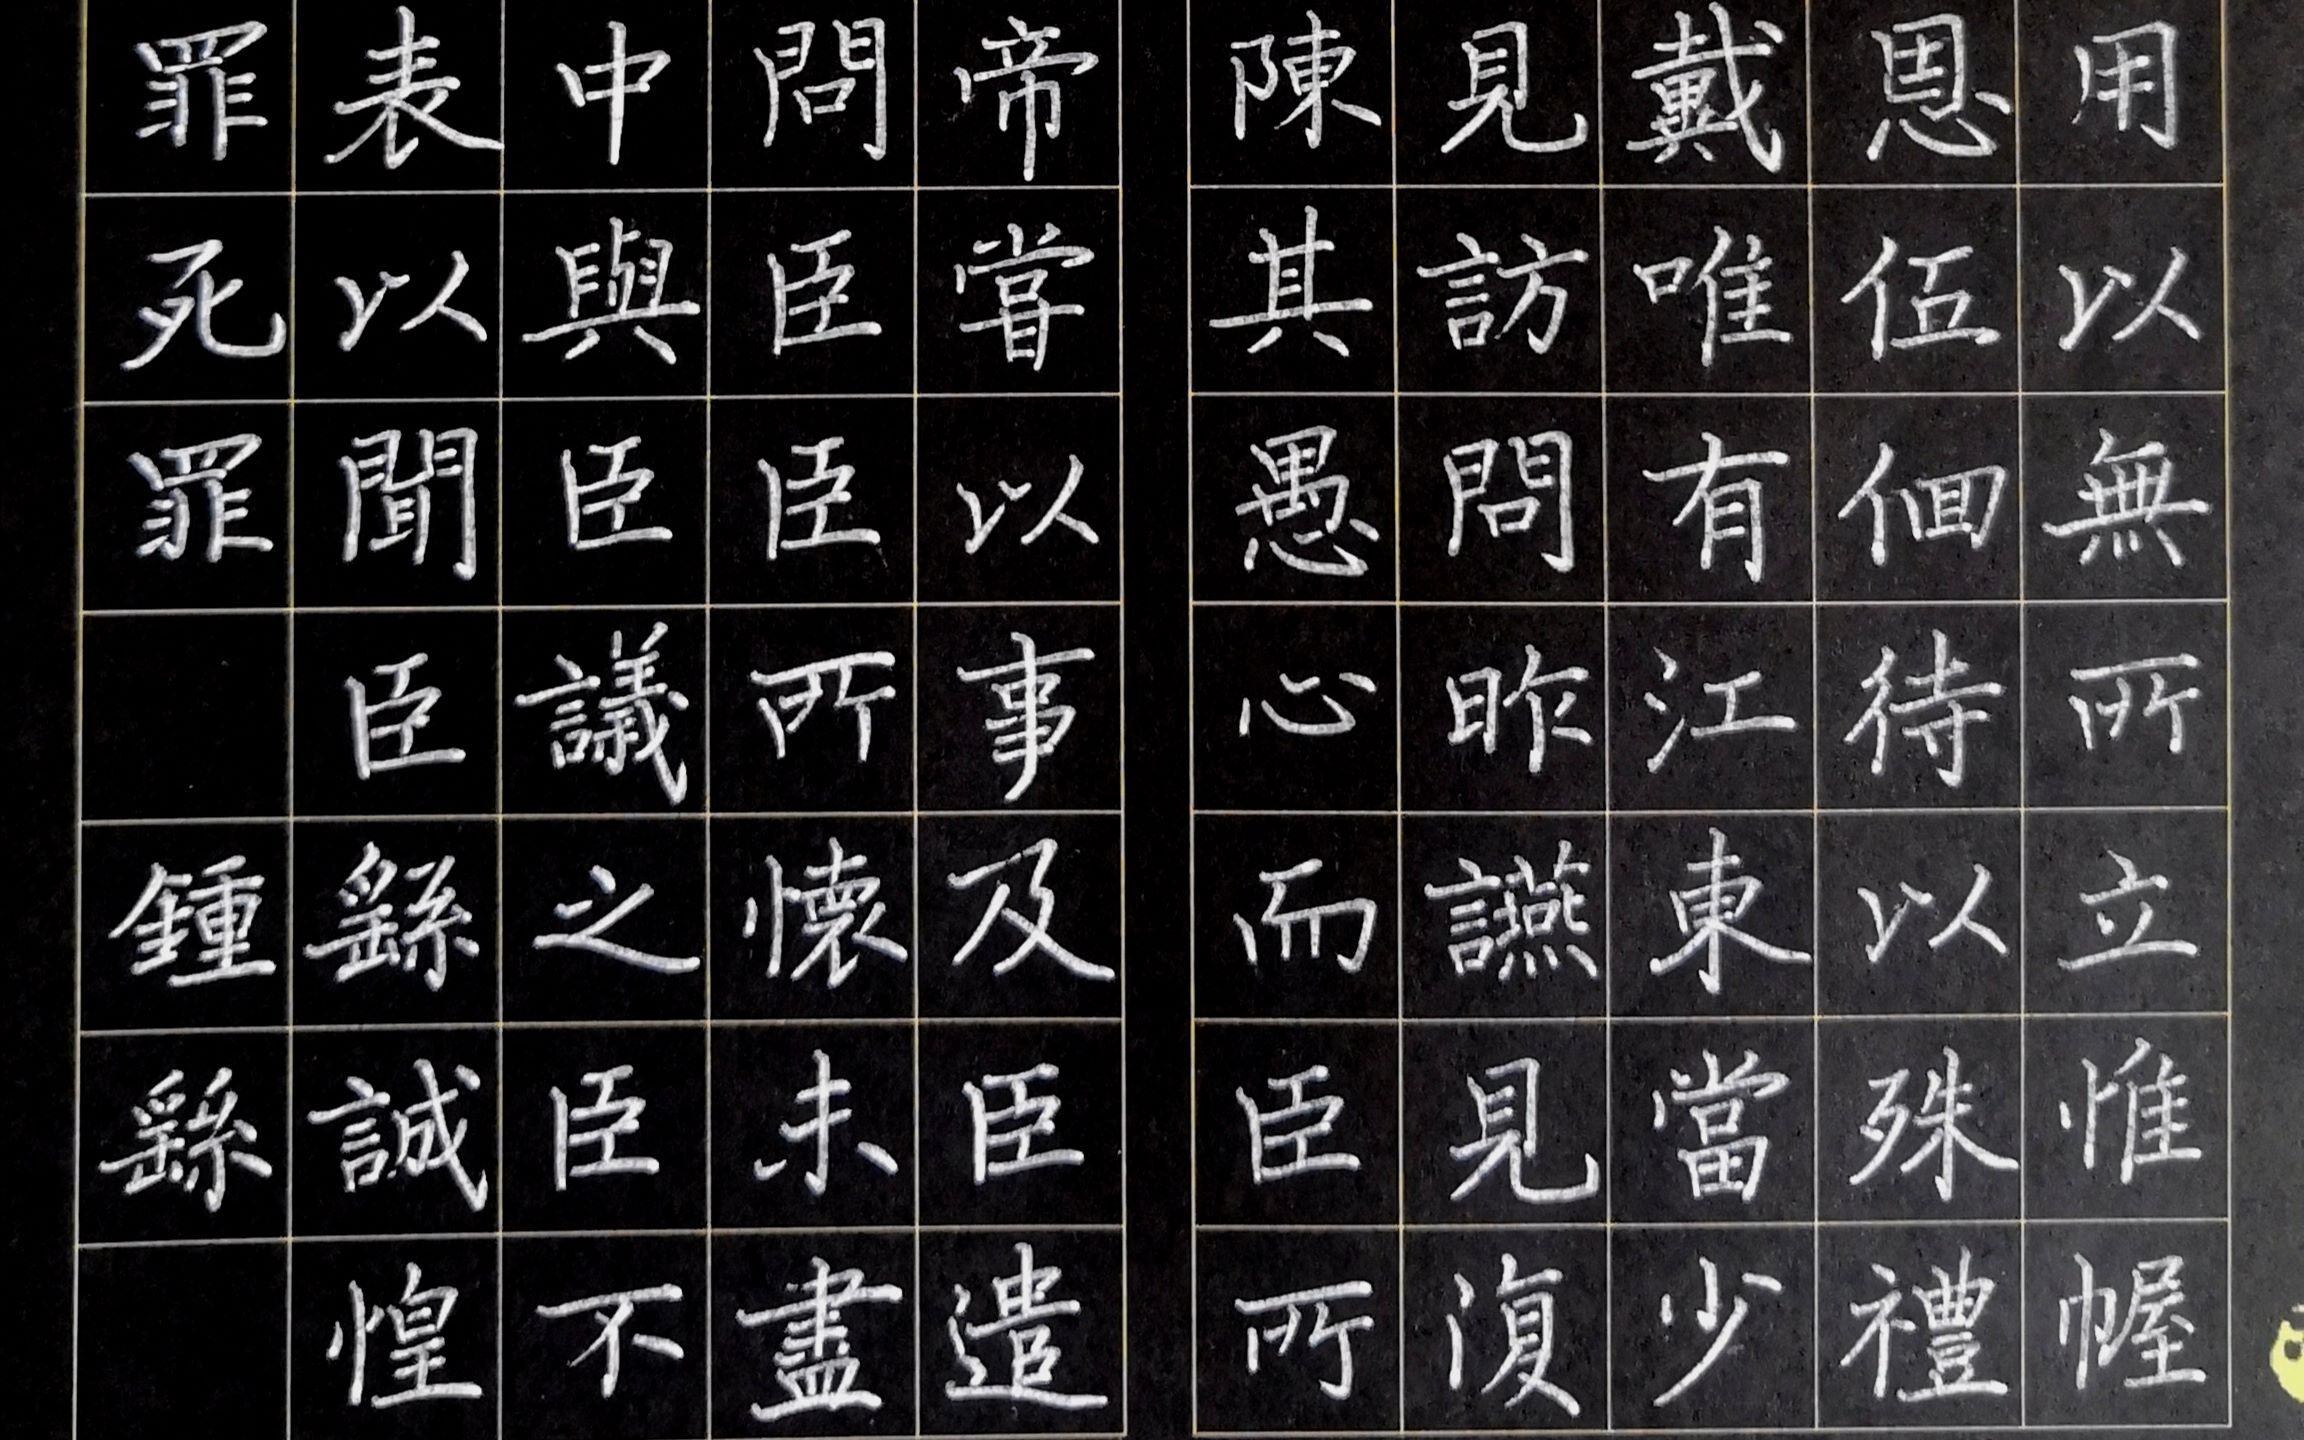 用以無所立惟幄
恩伍佪待以殊禮
戴唯有江東當少
見訪問昨讌見復
陳其愚心而臣所
帝嘗以事及臣遣
問臣臣所懷未盡
中與臣議之臣不
表以聞臣繇誠惶
罪死罪鍾繇